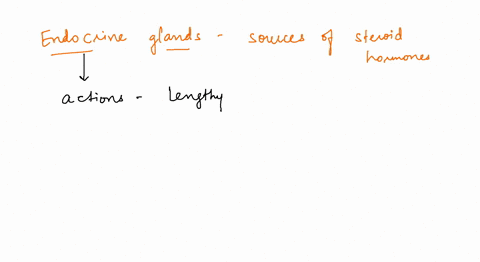 Endocrine glands - sources of steroid
hormones
actions - lengthy